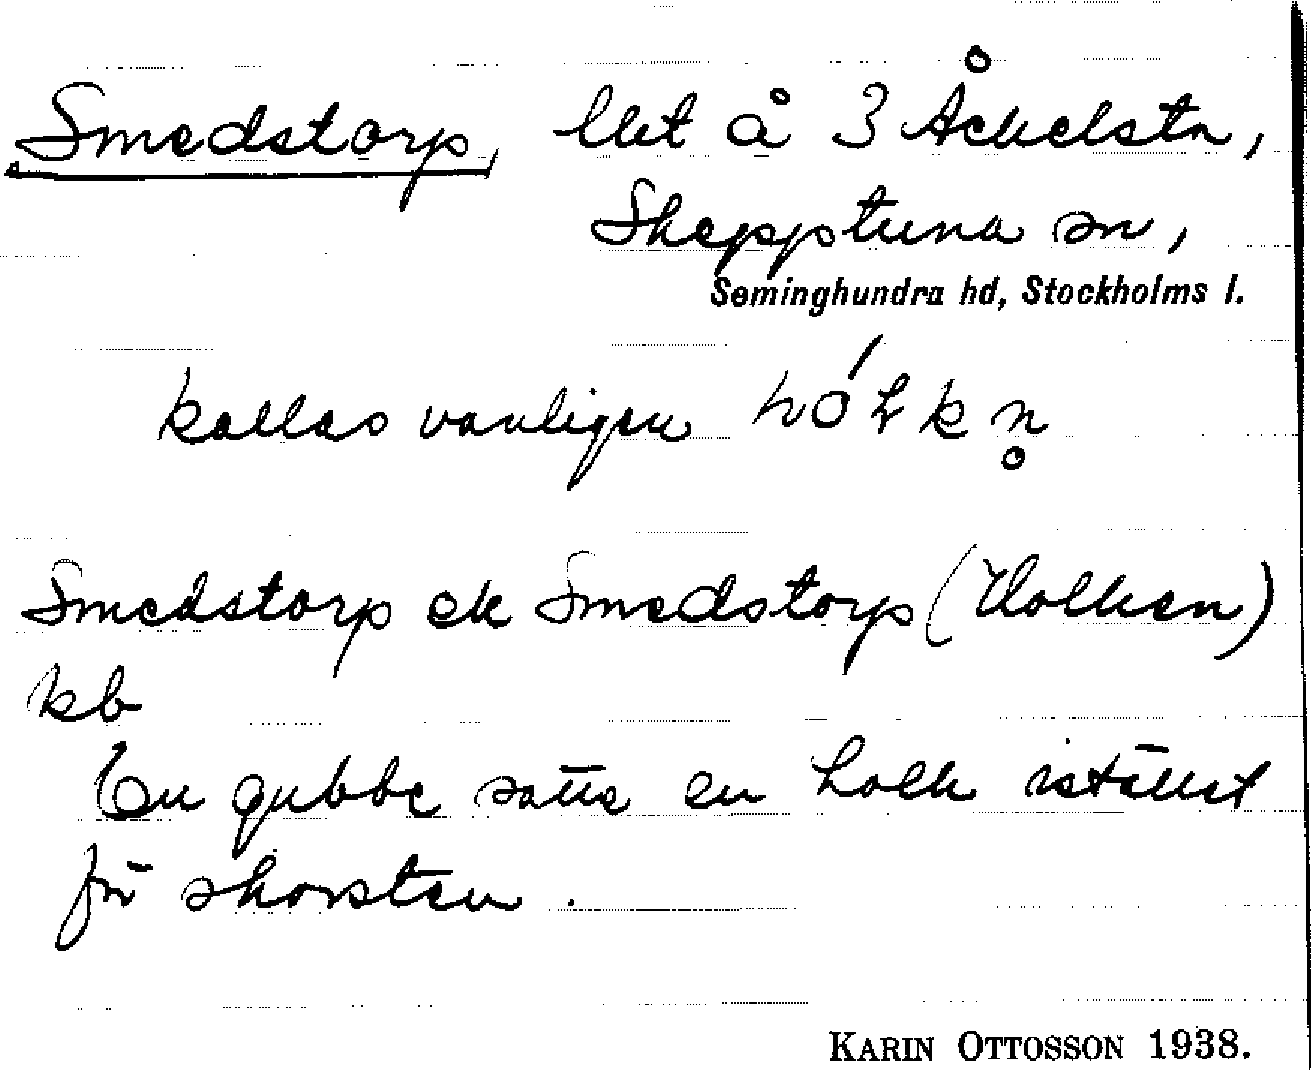 Smedstorp, lht å 3 Åckelsta,
Skepptuna sn,
Seminghundra hd, Stockholms l.
kallas vanligen hólkn̥
Smedstorp ek Smedstorp (Holken)
kb
En gubbe satte en holk istället
för skorsten.
KARIN OTTOSSON 1938.